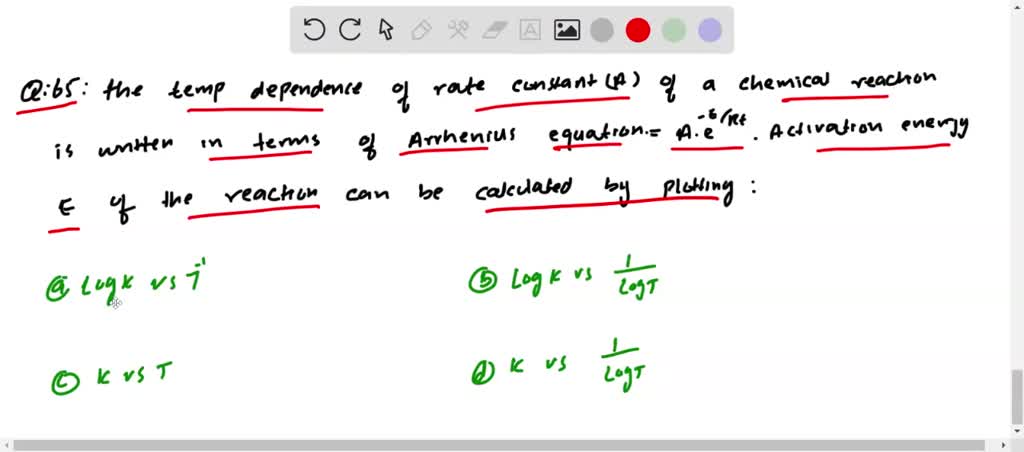 Q:65: the temp dependence of rate constant (A) of a chemical reaction
is written in terms of Arrhenius equation = A.e^-E/Rt. Activation energy
E of the reaction can be calculated by plotting:
(a) Logk vs T^-1
(b) Logk vs 1/LogT
(c) K vs T
(d) K vs 1/LogT